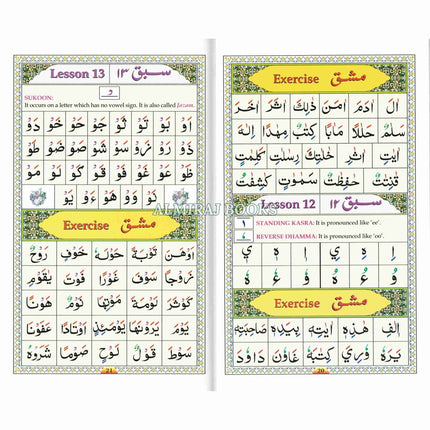 Exercise مشق
اٰلَ اٰدَمَ اٰمَنَ ذٰلِكَ اٰثَرَ اٰخَرَ
سَلٰمٌ حَلٰلًا مَاٰبًا كِتٰبٌ مِهٰدًا اِلٰهَ
رِسٰلٰتِ كَلِمٰتِ
قٰنِتٰتٌ حٰفِظٰتٌ سَمٰوٰتٍ كٰشِفٰتُ
Lesson 12 سبق ۱۲
STANDING KASRA: It is pronounced like 'ee'.
REVERSE DHAMMA: It is pronounced like 'oo'.
Exercise مشق
اٖلٰفِ هٰذِهٖ اٰيٰتِهٖ بِيَدِهٖ صَاحِبَتِهٖ
يَرَهٗ وٗرِيَ كُتُبِهٖ غَاوٗنَ دَاوٗدَ
20
Lesson 13 سبق ۱۳
SUKOON:
It occurs on a letter which has no vowel sign. It is also called jazam.
اَوْ بَوْ تَوْ ثَوْ جَوْ حَوْ خَوْ دَوْ
ذَوْ رَوْ زَوْ سَوْ شَوْ صَوْ ضَوْ طَوْ
ظَوْ عَوْ غَوْ فَوْ قَوْ كَوْ لَوْ مَوْ
نَوْ وَوْ هَوْ ءَوْ يَوْ
ALMIRAJ BOOKS
Exercise مشق
اَوْهَنَ تَوْبَةً حَوْلَهٗ خَوْفٌ رَوْحٌ
زَوْجًا سَوْفَ غَوْرًا فَوْتَ يَقَوْمِ
كَوْثَرَ لَوْمَةَ مَوْتِهَا نَوْمٌ هَوْنًا
يَوْمَ يَرَوْنَهَا يَوْمَئِذٍ اَوْتَادًا عَفَوْنَا
سَوْطَ قَوْلٌ لَوْحٍ صَوْمًا شَرَوْهُ
21